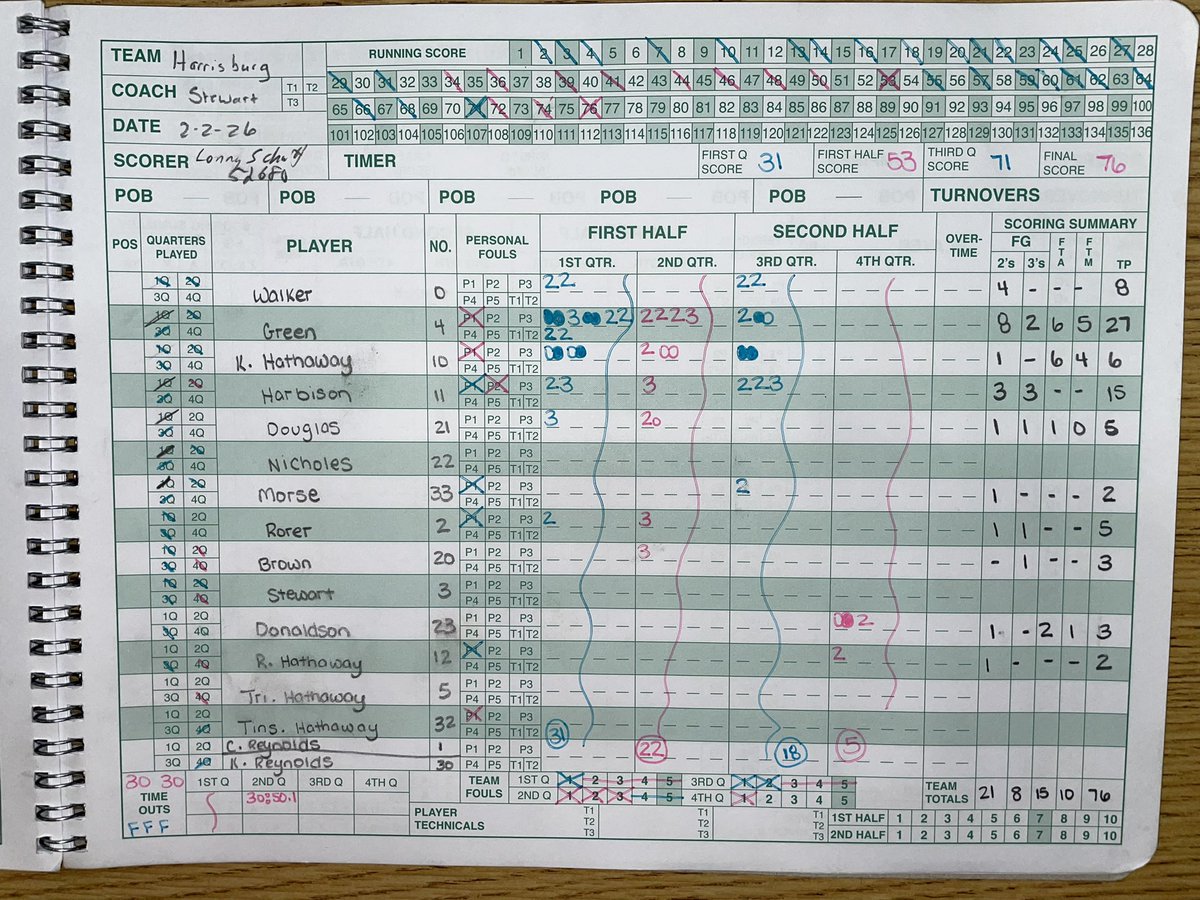 TEAM Harrisburg RUNNING SCORE 1 2 3 4 5 6 7 8 9 10 11 12 13 14 15 16 17 18 19 20 21 22 23 24 25 26 27 28
29 30 31 32 33 34 35 36 37 38 39 40 41 42 43 44 45 46 47 48 49 50 51 52 53 54 55 56 57 58 59 60 61 62 63 64
COACH Stewart T1 T2 T3
65 66 67 68 69 70 71 72 73 74 75 76 77 78 79 80 81 82 83 84 85 86 87 88 89 90 91 92 93 94 95 96 97 98 99 100
DATE 2-2-26
101 102 103 104 105 106 107 108 109 110 111 112 113 114 115 116 117 118 119 120 121 122 123 124 125 126 127 128 129 130 131 132 133 134 135 136
SCORER Lonny 52680 TIMER FIRST Q SCORE 31 FIRST HALF SCORE 53 THIRD Q SCORE 71 FINAL SCORE 76
POB — POB — POB — POB — POB — TURNOVERS
POS QUARTERS PLAYED PLAYER NO. PERSONAL FOULS FIRST HALF SECOND HALF OVER-TIME SCORING SUMMARY
1ST QTR. 2ND QTR. 3RD QTR. 4TH QTR. FG 2's 3's FTA FTM TP
1Q 2Q Walker 0 P1 P2 P3 22 22 4 - - - 8
3Q 4Q P4 P5 T1 T2
1Q 2Q Green 4 P1 P2 P3 3 22 2223 2 8 2 6 5 27
3Q 4Q P4 P5 T1 T2 22
1Q 2Q K. Hathaway 10 P1 P2 P3 2 1 - 6 4 6
3Q 4Q P4 P5 T1 T2
1Q 2Q Harbison 11 P1 P2 P3 23 3 223 3 3 - - 15
3Q 4Q P4 P5 T1 T2
1Q 2Q Douglas 21 P1 P2 P3 3 20 1 1 1 0 5
3Q 4Q P4 P5 T1 T2
1Q 2Q Nicholes 22 P1 P2 P3
3Q 4Q P4 P5 T1 T2
1Q 2Q Morse 33 P1 P2 P3 2 1 - - - 2
3Q 4Q P4 P5 T1 T2
1Q 2Q Rorer 2 P1 P2 P3 2 3 1 1 - - 5
3Q 4Q P4 P5 T1 T2
1Q 2Q Brown 20 P1 P2 P3 3 - 1 - - 3
3Q 4Q P4 P5 T1 T2
1Q 2Q Stewart 3 P1 P2 P3
3Q 4Q P4 P5 T1 T2
1Q 2Q Donaldson 23 P1 P2 P3 2 1 - 2 1 3
3Q 4Q P4 P5 T1 T2
1Q 2Q R. Hathaway 12 P1 P2 P3 2 1 - - - 2
3Q 4Q P4 P5 T1 T2
1Q 2Q Tri. Hathaway 5 P1 P2 P3
3Q 4Q P4 P5 T1 T2
1Q 2Q Tins. Hathaway 32 P1 P2 P3
3Q 4Q P4 P5 T1 T2 31 22 18 5
1Q 2Q C. Reynolds 1 P1 P2 P3
3Q 4Q K. Reynolds 30 P4 P5 T1 T2
30 30 TIME OUTS FFF 1ST Q 2ND Q 3RD Q 4TH Q
30:50.1
TEAM FOULS 1ST Q 1 2 3 4 5 3RD Q 1 2 3 4 5
2ND Q 1 2 3 4 5 4TH Q 1 2 3 4 5
TEAM TOTALS 21 8 15 10 76
PLAYER TECHNICALS T1 T2 T3 T1 T2 T3 T1 T2 T3
1ST HALF 1 2 3 4 5 6 7 8 9 10
2ND HALF 1 2 3 4 5 6 7 8 9 10